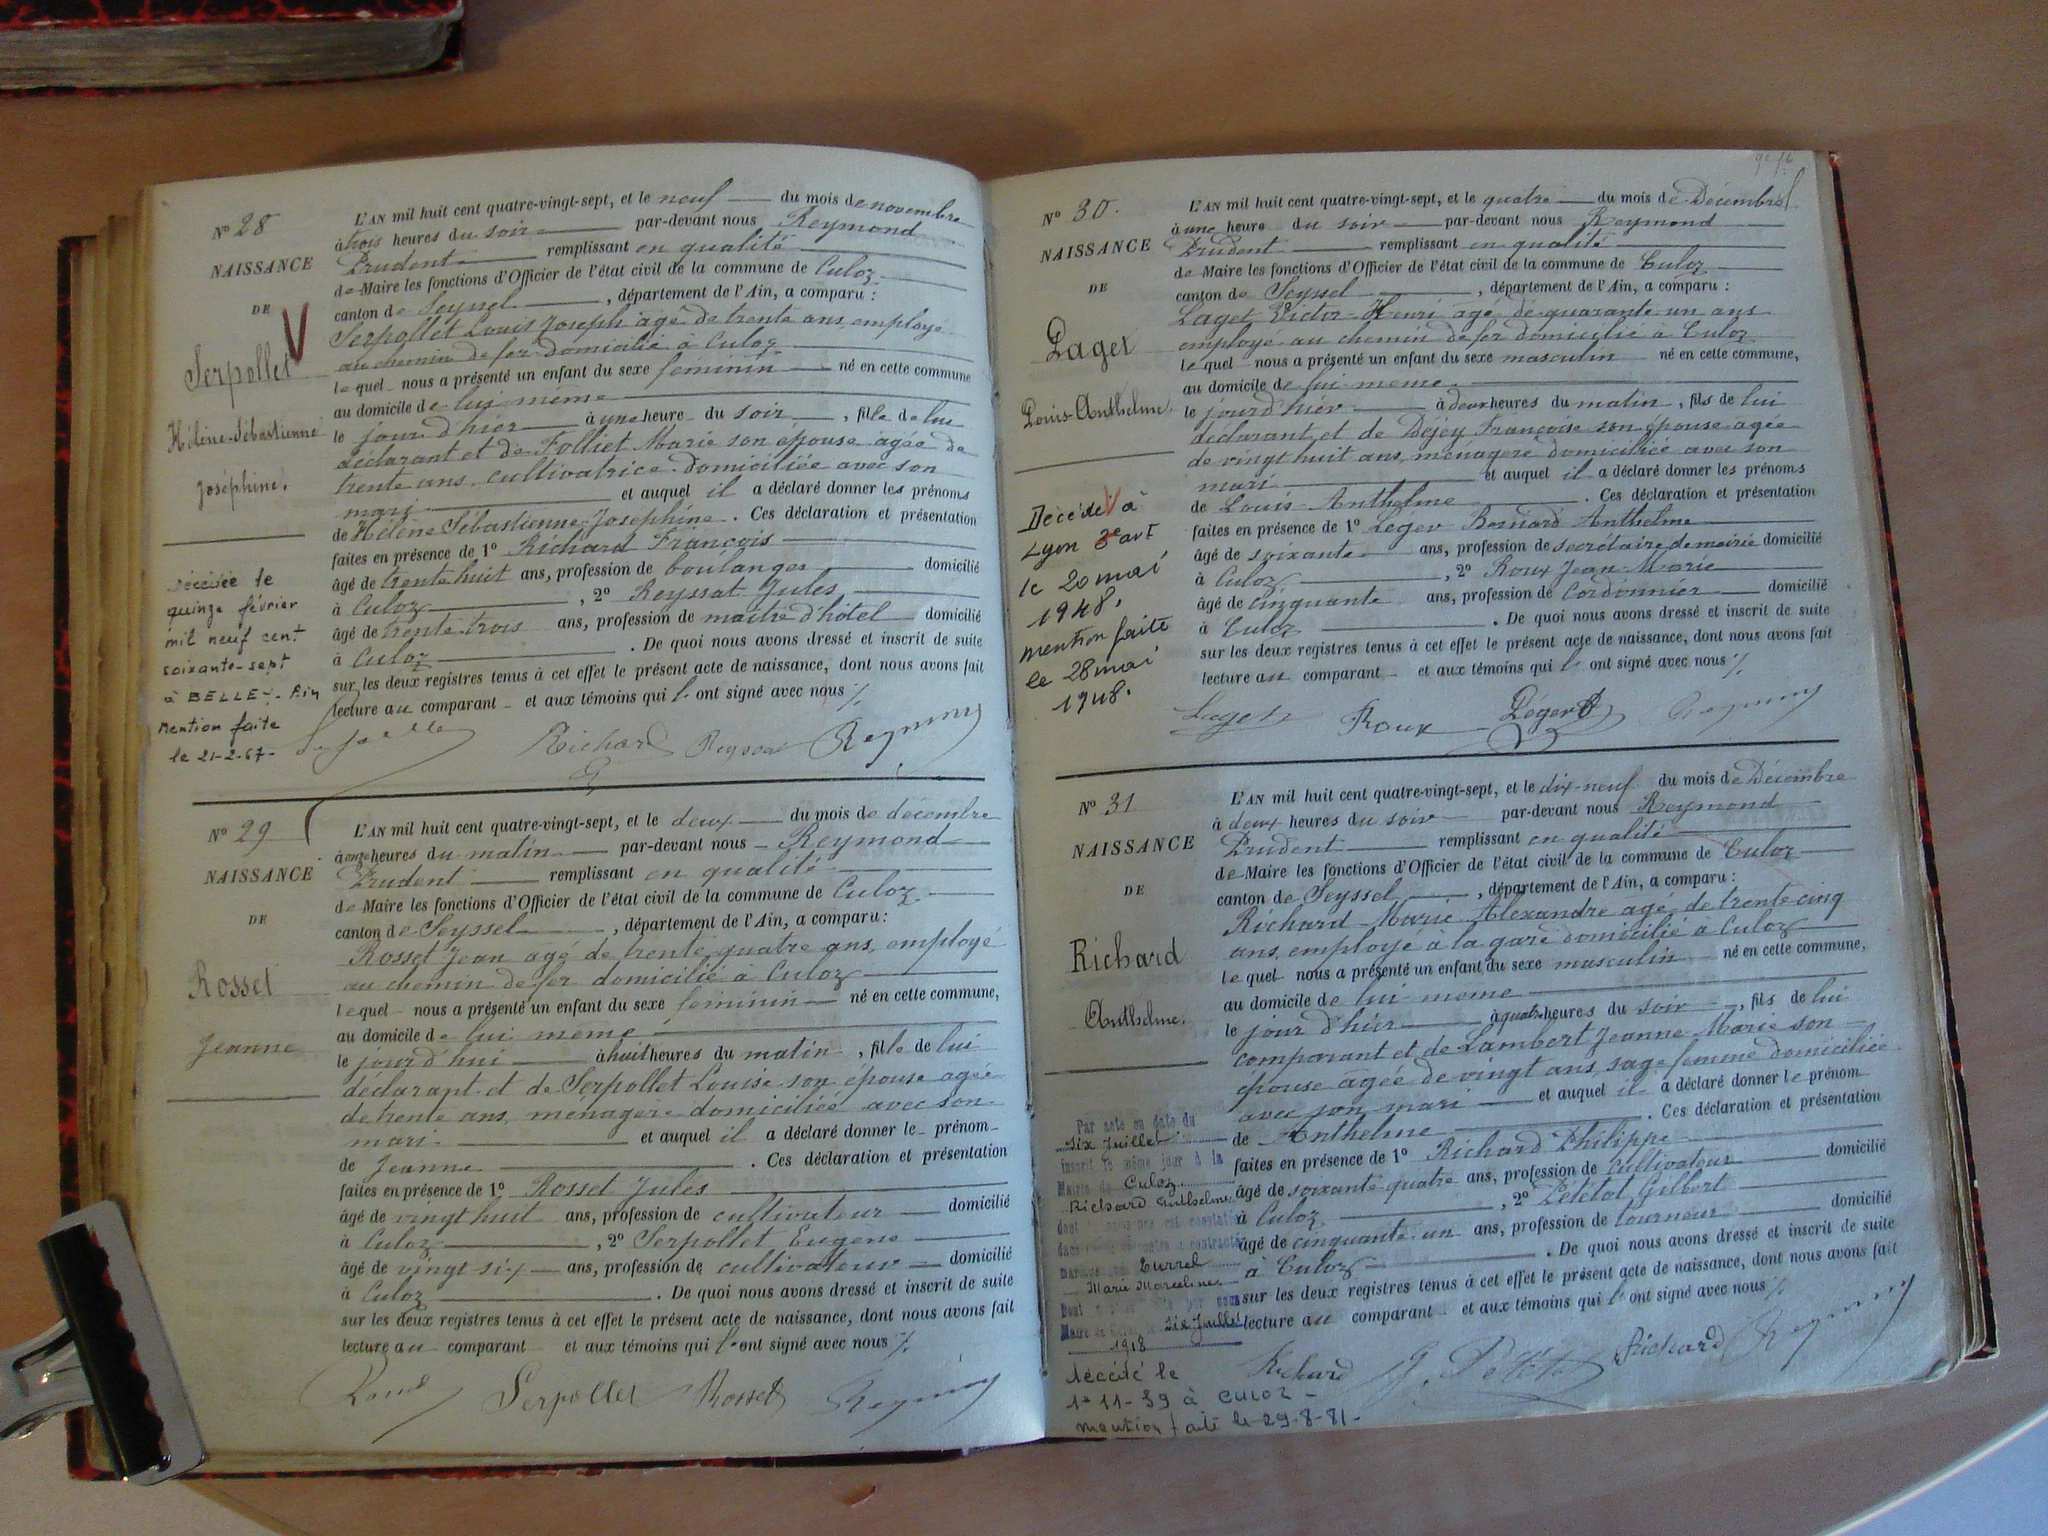 Nº 28
NAISSANCE
DE
Serpollet
Hélène-Sébastienne
Joséphine.
Décédée le
quinze février
mil neuf cent
soixante-sept
à BELLEY- Ain
Mention faite
le 21-2-67-
L'AN mil huit cent quatre-vingt-sept, et le neuf du mois de novembre
à trois heures du soir par-devant nous Reymond
Prudent remplissant en qualité
de Maire les fonctions d'Officier de l'état civil de la commune de Culoz
canton de Seyssel, département de l'Ain, a comparu :
Serpollet Louis Joseph agé de trente ans employé
au chemin de fer domicilié à Culoz
lequel nous a présenté un enfant du sexe féminin né en cette commune
au domicile de lui même
le jour d'hier à une heure du soir, fille de lui
déclarant et de Folliet Marie son épouse agée de
trente ans, cultivatrice domiciliée avec son
mari et auquel il a déclaré donner les prénoms
de Hélène Sébastienne Joséphine. Ces déclaration et présentation
faites en présence de 1º Richard François
âgé de trente huit ans, profession de boulanger domicilié
à Culoz, 2º Reyssat Jules
âgé de trente trois ans, profession de maître d'hôtel domicilié
à Culoz. De quoi nous avons dressé et inscrit de suite
sur les deux registres tenus à cet effet le présent acte de naissance, dont nous avons fait
lecture au comparant et aux témoins qui l'ont signé avec nous
Richard Reyssat Reymond
Nº 29
NAISSANCE
DE
Rosset
Jeanne
L'AN mil huit cent quatre-vingt-sept, et le deux du mois de décembre
à onze heures du matin par-devant nous Reymond
Prudent remplissant en qualité
de Maire les fonctions d'Officier de l'état civil de la commune de Culoz
canton de Seyssel, département de l'Ain, a comparu :
Rosset Jean agé de trente quatre ans, employé
au chemin de fer domicilié à Culoz
lequel nous a présenté un enfant du sexe féminin né en cette commune,
au domicile de lui même
le jourd'hui à huit heures du matin, fille de lui
déclarant et de Serpollet Louise son épouse agée
de trente ans, ménagère domiciliée avec son
mari et auquel il a déclaré donner le prénom
de Jeanne. Ces déclaration et présentation
faites en présence de 1º Rosset Jules
âgé de vingt huit ans, profession de cultivateur domicilié
à Culoz, 2º Serpollet Eugène
âgé de vingt six ans, profession de cultivateur domicilié
à Culoz. De quoi nous avons dressé et inscrit de suite
sur les deux registres tenus à cet effet le présent acte de naissance, dont nous avons fait
lecture au comparant et aux témoins qui l'ont signé avec nous
Serpollet Rosset Reymond
Nº 30.
NAISSANCE
DE
Laget
Louis-Anthelme.
Décédé à
Lyon 3e art
le 20 mai
1948.
mention faite
le 28 mai
1948.
L'AN mil huit cent quatre-vingt-sept, et le quatre du mois de Décembre
à une heure du soir par-devant nous Reymond
Prudent remplissant en qualité
de Maire les fonctions d'Officier de l'état civil de la commune de Culoz
canton de Seyssel, département de l'Ain, a comparu :
Laget Victor-Henri agé de quarante un ans
employé au chemin de fer domicilié à Culoz
lequel nous a présenté un enfant du sexe masculin né en cette commune,
au domicile de lui meme
le jour d'hier à deux heures du matin, fils de lui
déclarant et de Dejey Françoise son épouse agée
de vingt huit ans, ménagère domiciliée avec son
mari et auquel il a déclaré donner les prénoms
de Louis Anthelme. Ces déclaration et présentation
faites en présence de 1º Léger Bernard Anthelme
âgé de soixante ans, profession de secrétaire de mairie domicilié
à Culoz, 2º Roux Jean Marie
âgé de cinquante ans, profession de Cordonnier domicilié
à Culoz. De quoi nous avons dressé et inscrit de suite
sur les deux registres tenus à cet effet le présent acte de naissance, dont nous avons fait
lecture au comparant et aux témoins qui l'ont signé avec nous
Laget Roux Léger Reymond
Nº 31
NAISSANCE
DE
Richard
Anthelme.
Par acte en date du
six Juillet
inscrit le même jour à la
Mairie de Culoz
Richard Anthelme
Turrel
Marie Marceline
six Juillet
1918
Décédé le
1-11-59 à CULOZ-
mention faite le 29-8-81-
L'AN mil huit cent quatre-vingt-sept, et le dix-neuf du mois de Décembre
à deux heures du soir par-devant nous Reymond
Prudent remplissant en qualité
de Maire les fonctions d'Officier de l'état civil de la commune de Culoz
canton de Seyssel, département de l'Ain, a comparu :
Richard Marie Alexandre agé de trente cinq
ans, employé à la gare domicilié à Culoz
lequel nous a présenté un enfant du sexe masculin né en cette commune,
au domicile de lui meme
le jour d'hier à quatre heures du soir, fils de lui
comparant et de Lambert Jeanne Marie son
épouse agée de vingt ans, sage femme domiciliée
avec son mari et auquel il a déclaré donner le prénom
de Anthelme. Ces déclaration et présentation
faites en présence de 1º Richard Philippe
âgé de soixante quatre ans, profession de cultivateur domicilié
à Culoz, 2º Pététot Gilbert
âgé de cinquante un ans, profession de tourneur domicilié
à Culoz. De quoi nous avons dressé et inscrit de suite
sur les deux registres tenus à cet effet le présent acte de naissance, dont nous avons fait
lecture au comparant et aux témoins qui l'ont signé avec nous
Richard Richard Reymond